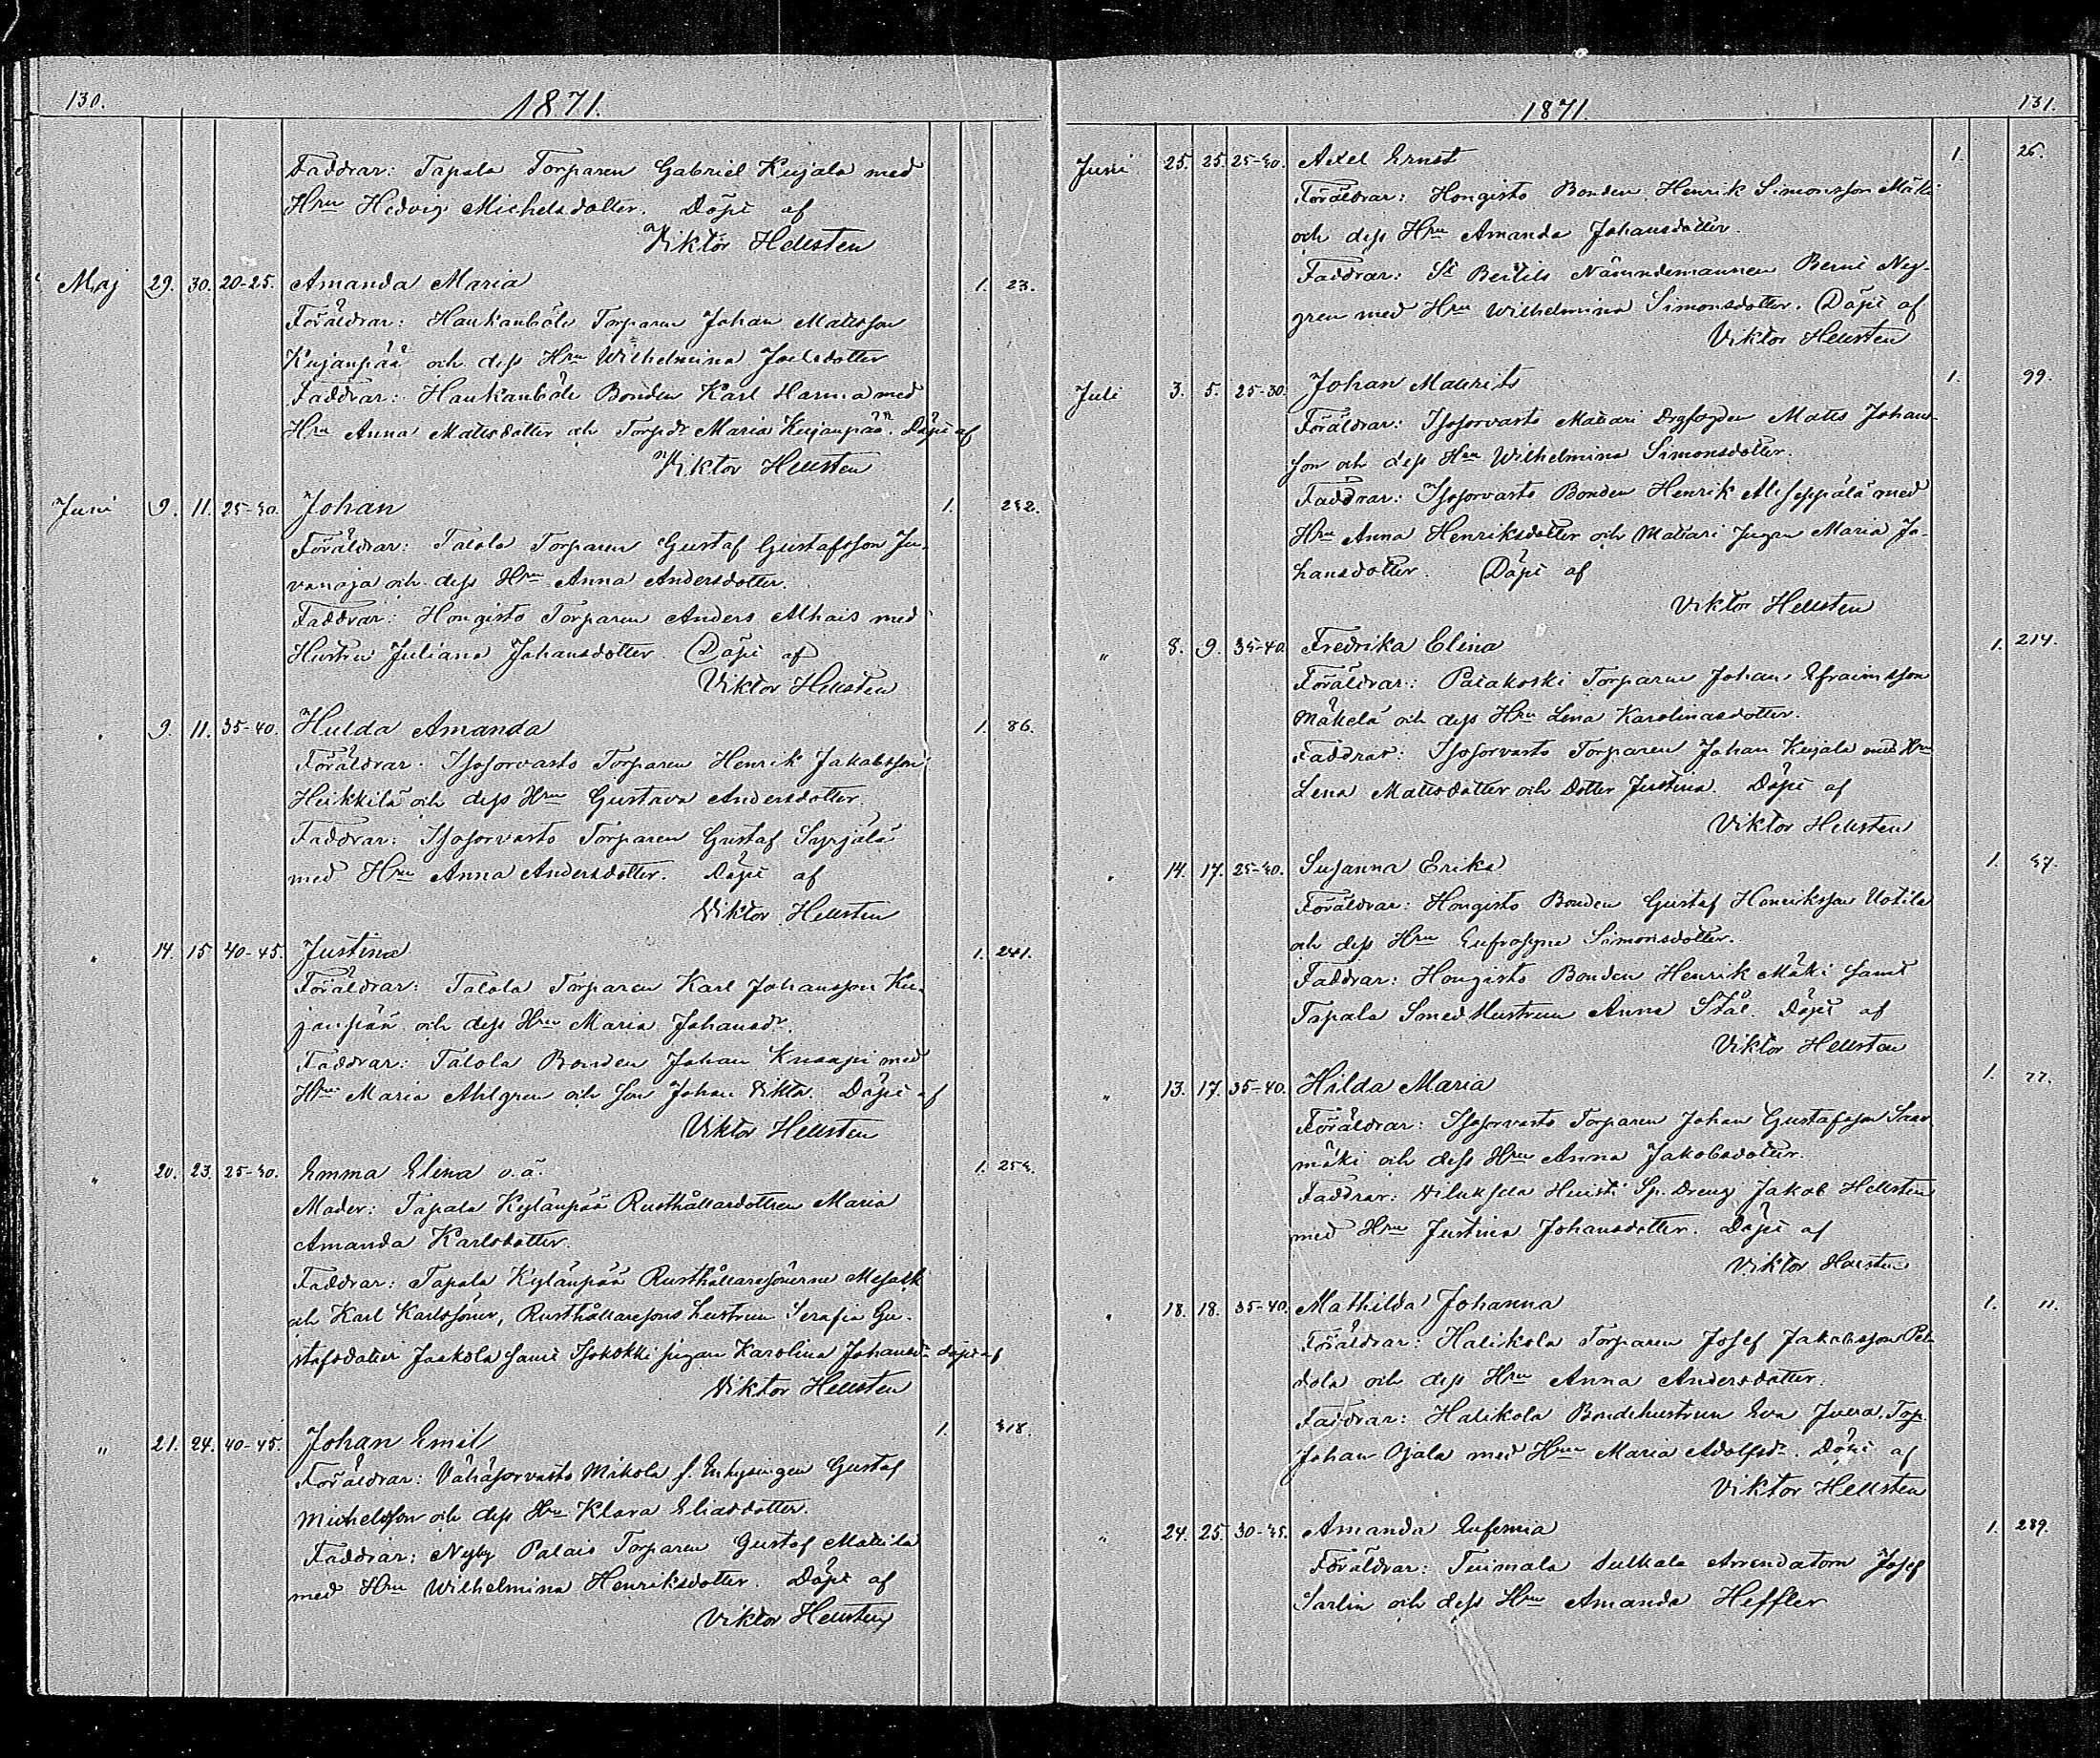 130.
1871.
Faddrar: Tapala Torparen Gabriel Kujala med
Hru Hedvig Michelsdotter. Döpt af
Viktor Hellsten
Maj 29. 30. 20-25. Amanda Maria 1. 23.
Föräldrar: Haukanböle Torparen Johan Matsson
Kujanpää och dess Hru Wilhelmina Joelsdotter
Faddrar: Haukanböle Bonden Karl Harma med
Hru Anna Matsdotter och Torpdr Maria Kujanpää. Döpt af
Viktor Hellsten
Juni 9. 11. 25-30. Johan 1. 232.
Föräldrar: Talola Torparen Gustaf Gustafsson Ju-
vanoja och dess Hru Anna Andersdotter.
Faddrar: Hongisto Torparen Anders Alhais med
Hustru Juliana Johansdotter. Döpt af
Viktor Hellsten
" 9. 11. 35-40. Hulda Amanda 1. 86.
Föräldrar: Isosorvasto Torparen Henrik Jakobsson
Heikkilä och dess Hru Gustava Andersdotter.
Faddrar: Isosorvasto Torparen Gustaf Syrjälä
med Hru Anna Andersdotter. Döpt af
Viktor Hellsten
" 14. 15 40-45. Justina 1. 241.
Föräldrar: Talola Torparen Karl Johansson Ku-
janpää och dess Hru Maria Johansdr.
Faddrar: Talola Bonden Johan Knaapi med
Hru Maria Ahlgren och Son Johan Viktor. Döpt af
Viktor Hellsten
" 20. 23. 25-30. Emma Elina o.ä. 1. 253.
Moder: Tapala Kylänpää Rusthållardottren Maria
Amanda Karlsdotter.
Faddrar: Tapala Kylänpää Rusthållaresönerne
och Karl Karlssöner, Rusthållaresons hustrun Serafia Gu-
stafsdotter Jaakola samt Isokokki pigan Karolina Johansdr döpt af
Viktor Hellsten
" 21. 24. 40-45. Johan Emil 1. 318.
Föräldrar: Vähäsorvasto Mikola f. Inhysingen Gustaf
Michelsson och dess Hru Klara Eliasdotter.
Faddrar: Nyby Palais Torparen Gustaf Mattila
med Hru Wilhelmina Henriksdotter. Döpt af
Viktor Hellsten
1871.
131.
Juni 25. 25. 25-30. Axel Ernst 1. 26.
Föräldrar: Hongisto Bonden Henrik Simonsson Mäki
och dess Hru Amanda Johansdotter.
Faddrar: St Bertils Nämndemannen Bernt Ny-
gren med Hru Wilhelmina Simonsdotter. Döpt af
Viktor Hellsten
Juli 3. 5. 25-30. Johan Maurits 1. 99.
Föräldrar: Isosorvasto Mattari Matts Johans-
son och dess Hru Wilhelmina Simonsdotter.
Faddrar: Isosorvasto Bonden Henrik Aliseppälä med
Hru Anna Henriksdotter och Mattari Jungfru Maria Jo-
hansdotter. Döpt af
Viktor Hellsten
" 8. 9. 35-40. Fredrika Elina 1. 214.
Föräldrar: Patakoski Torparen Johan Efraimsson
Mäkelä och dess Hru Lena Karolinasdotter.
Faddrar: Isosorvasto Torparen Johan Kujala med Hru
Lena Mattsdotter och dotter Justina. Döpt af
Viktor Hellsten
" 14. 17. 25-30. Susanna Erika 1. 37.
Föräldrar: Hongisto Bonden Gustaf Henriksson Uotila
och dess Hru Eufrosyne Simonsdotter.
Faddrar: Hongisto Bonden Henrik Mäki samt
Tapala Smedhustrun Anna Stål. Döpt af
Viktor Hellsten
" 13. 17. 35-40. Hilda Maria 1. 77.
Föräldrar: Isosorvasto Torparen Johan Gustafsson Saar-
mäki och dess Hru Anna Jakobsdotter.
Faddrar: Viluksela Huisti Sp. Dreng Jakob Hellsten
med Hru Justina Johansdotter. Döpt af
Viktor Hellsten
" 18. 18. 35-40. Mathilda Johanna 1. 11.
Föräldrar: Halikola Torparen Josef Jakobsson Pel-
dola och dess Hru Anna Andersdotter.
Faddrar: Halikola Bondehustrun Eva Juva, Torp.
Johan Ojala med Hru Maria Adolfsdr. Döpt af
Viktor Hellsten
" 24. 25. 30-35. Amanda Eufemia 1. 289.
Föräldrar: Tuimala Sulkala Arrendatorn Josef
Sarlin och dess Hru Amanda Heffler